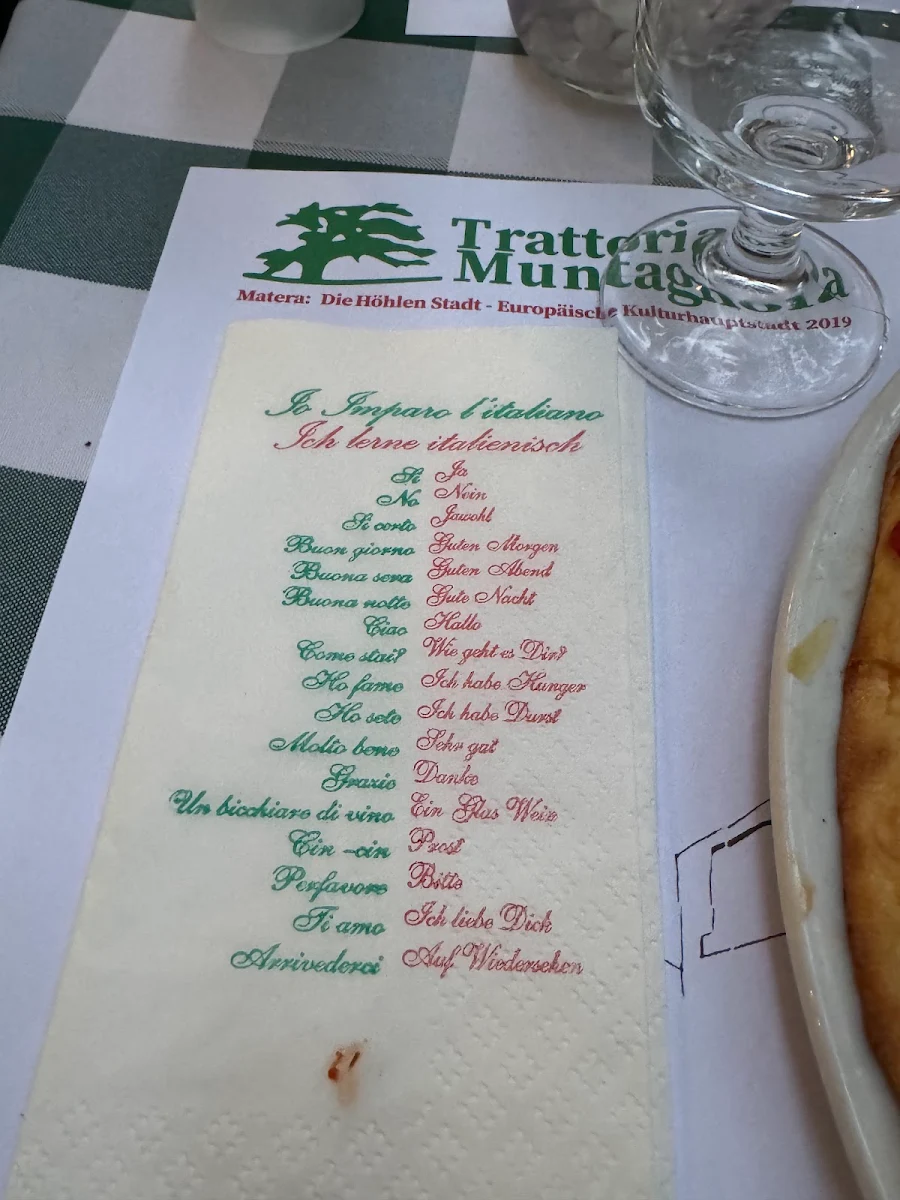 Trattoria
Muntagnola
Matera: Die Höhlen Stadt - Europäische Kulturhauptstadt 2019
Io Imparo l'italiano
Ich lerne italienisch
Si Ja
No Nein
Si certo Jawohl
Buon giorno Guten Morgen
Buona sera Guten Abend
Buona notte Gute Nacht
Ciao Hallo
Come stai? Wie geht es Dir?
Ho fame Ich habe Hunger
Ho sete Ich habe Durst
Molto bene Sehr gut
Grazie Danke
Un bicchiere di vino Ein Glas Wein
Cin -cin Prost
Perfavore Bitte
Ti amo Ich liebe Dich
Arrivederci Auf Wiedersehen